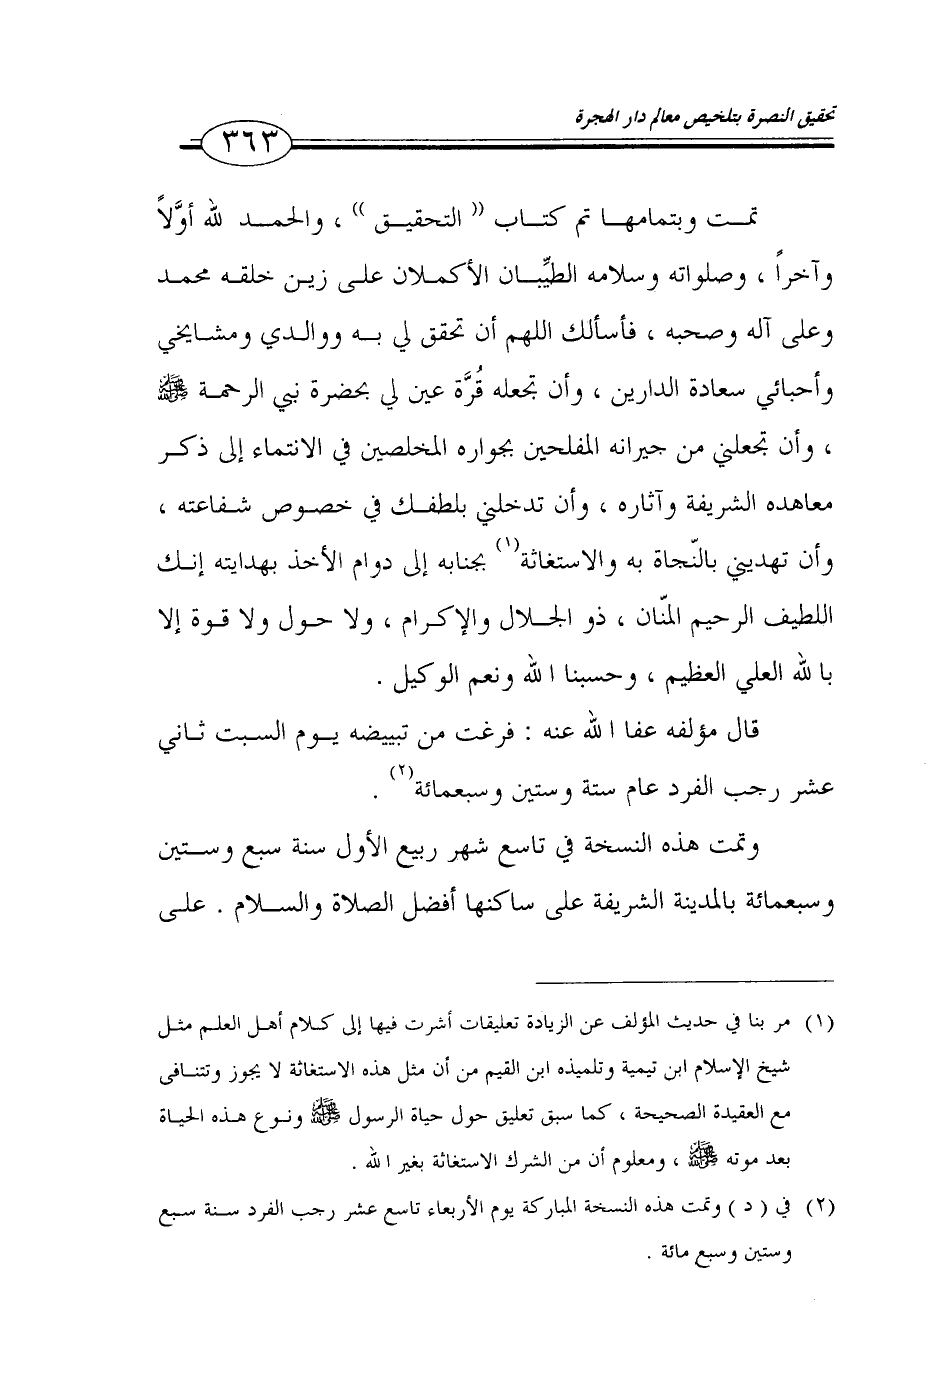 تحقيق النصرة بتلخيص معالم دار الهجرة
٣٦٣
تمــت وبتمامهــا تم كتــاب (( التحقيــق )) ، والحمــد لله أوَّلاً
وآخراً ، وصلواته وسلامه الطيِّبــان الأكمــلان علــى زيــن خلقــه محمــد
وعلى آله وصحبه ، فأسألك اللهم أن تحقق لي بــه ووالــدي ومشــايخي
وأحبائي سعادة الدارين ، وأن تجعله قُرَّة عين لي بحضرة نبي الرحمــة ﷺ
، وأن تجعلني من جيرانه المفلحين بجواره المخلصين في الانتماء إلى ذكــر
معاهده الشريفة وآثاره ، وأن تدخلني بلطفــك في خصــوص شــفاعته ،
وأن تهديني بالنّجاة به والاستغاثة(١) بجنابه إلى دوام الأخذ بهدايته إنــك
اللطيف الرحيم المنّان ، ذو الجــلال والإكــرام ، ولا حــول ولا قــوة إلا
بالله العلي العظيم ، وحسبنا الله ونعم الوكيل .
قال مؤلفه عفا الله عنه : فرغت من تبييضه يــوم الســبت ثــاني
عشر رجب الفرد عام ستة وستين وسبعمائة(٢) .
وتمت هذه النسخة في تاسع شهر ربيع الأول سنة سبع وســتين
وسبعمائة بالمدينة الشريفة على ساكنها أفضل الصلاة والســلام . علــى
(١) مر بنا في حديث المؤلف عن الزيادة تعليقات أشرت فيها إلى كــلام أهــل العلــم مثــل
شيخ الإسلام ابن تيمية وتلميذه ابن القيم من أن مثل هذه الاستغاثة لا يجوز وتتنــافى
مع العقيدة الصحيحة ، كما سبق تعليق حول حياة الرسول ﷺ ونــوع هــذه الحيــاة
بعد موته ﷺ ، ومعلوم أن من الشرك الاستغاثة بغير الله .
(٢) في ( د ) وتمت هذه النسخة المباركة يوم الأربعاء تاسع عشر رجب الفرد ســنة ســبع
وستين وسبع مائة .